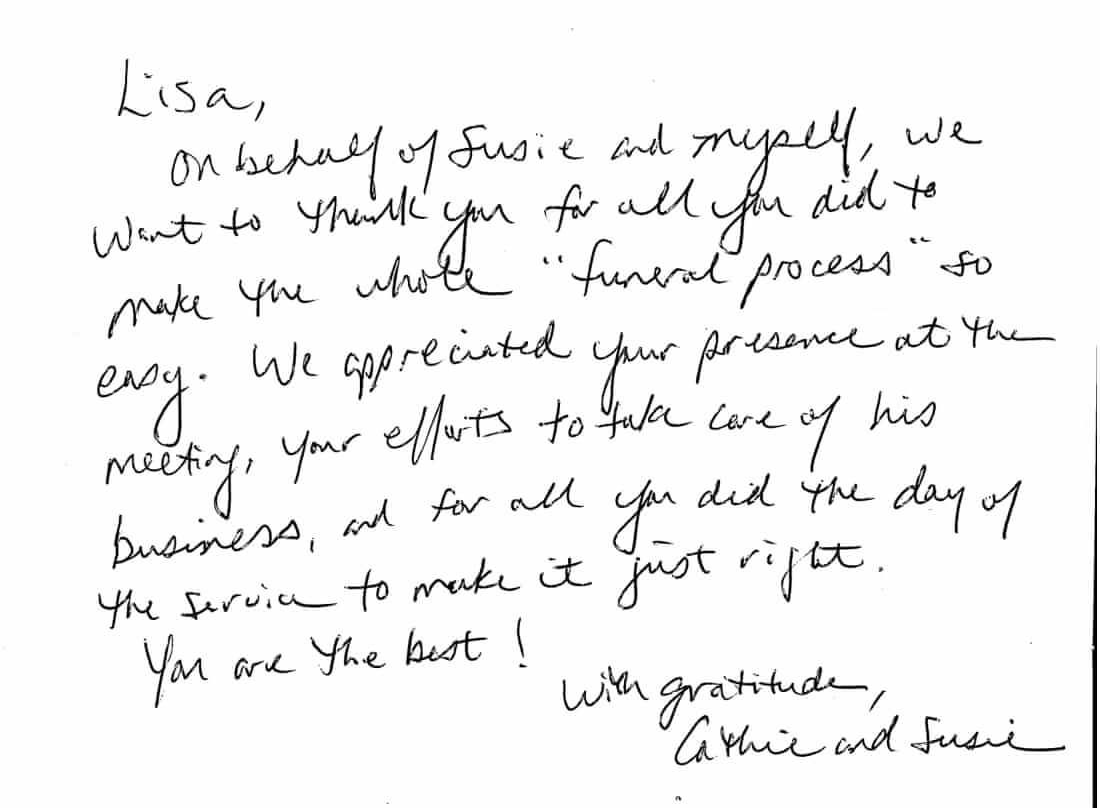 Lisa,
On behalf of Susie and myself, we
want to thank you for all you did to
make the whole "funeral process" so
easy. We appreciated your presence at the
meeting, your efforts to take care of his
business, and for all you did the day of
the service to make it just right.
You are the best!
With gratitude,
Cathie and Susie